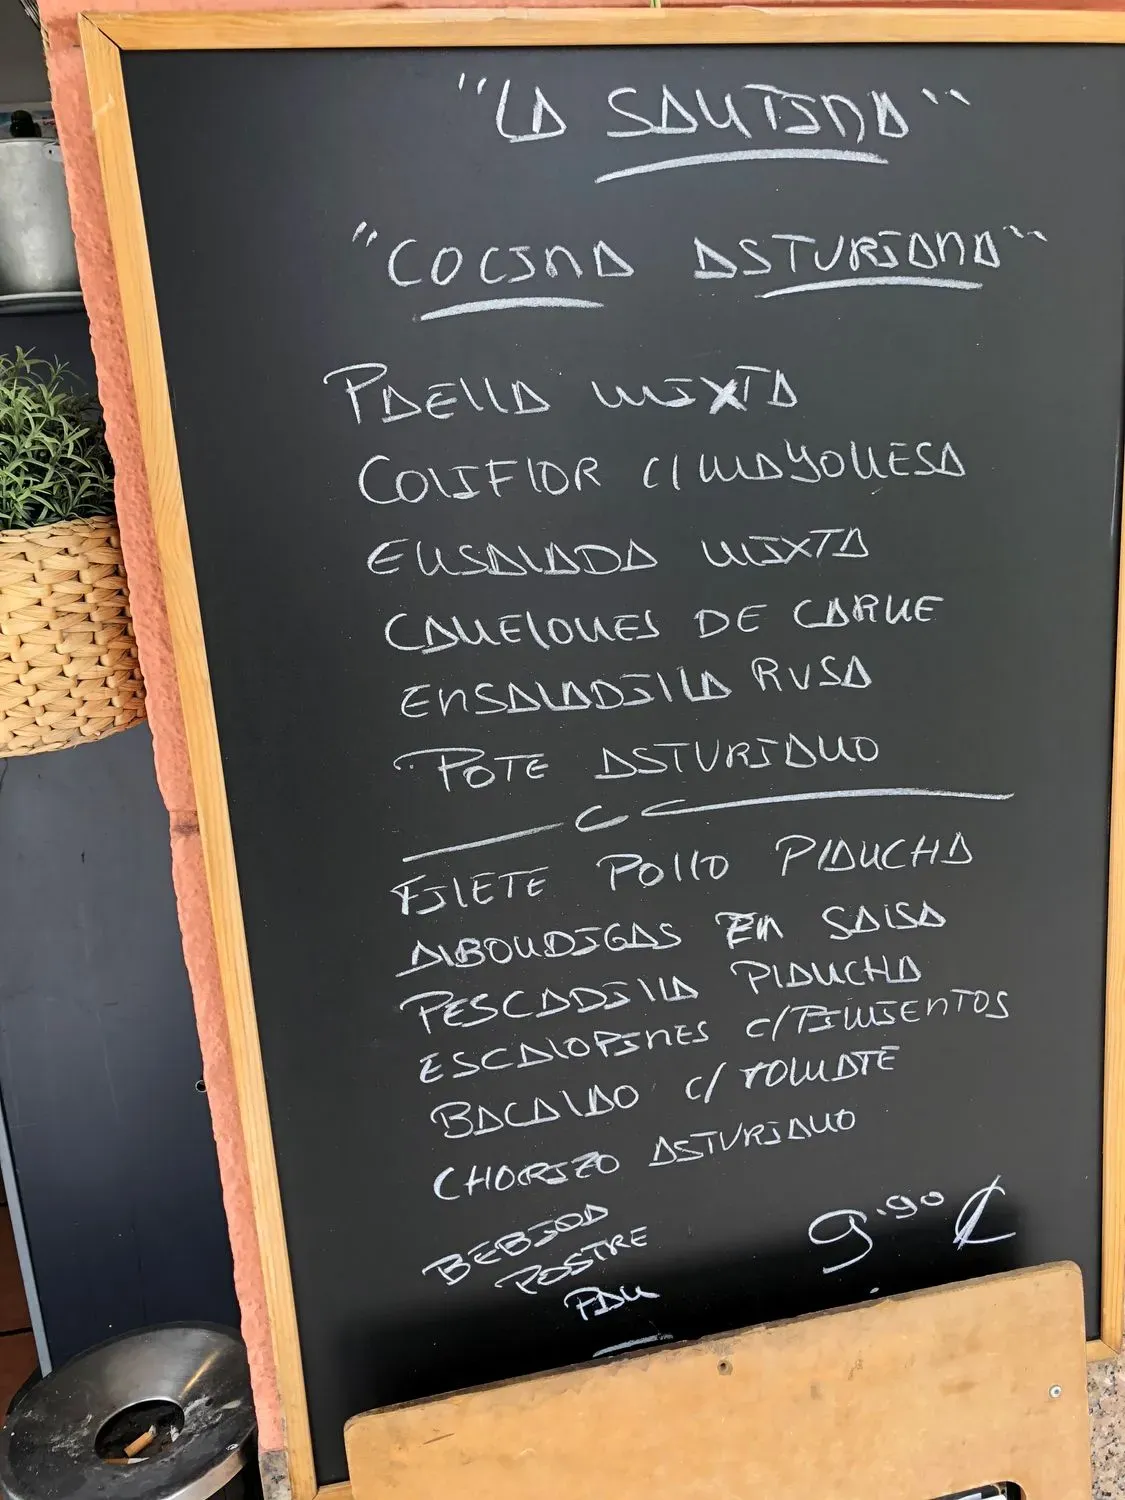 "LA SANTINA"
"COCINA ASTURIANA"
PAELLA MIXTA
COLIFLOR C/MAYONESA
ENSALADA MIXTA
CANELONES DE CARNE
ENSALADILLA RUSA
POTE ASTURIANO
FILETE POLLO PLANCHA
ALBONDIGAS EN SALSA
PESCADILLA PLANCHA
ESCALOPINES C/PIMIENTOS
BACALAO C/TOMATE
CHORIZO ASTURIANO
BEBIDA
POSTRE
PAN
9.90 €